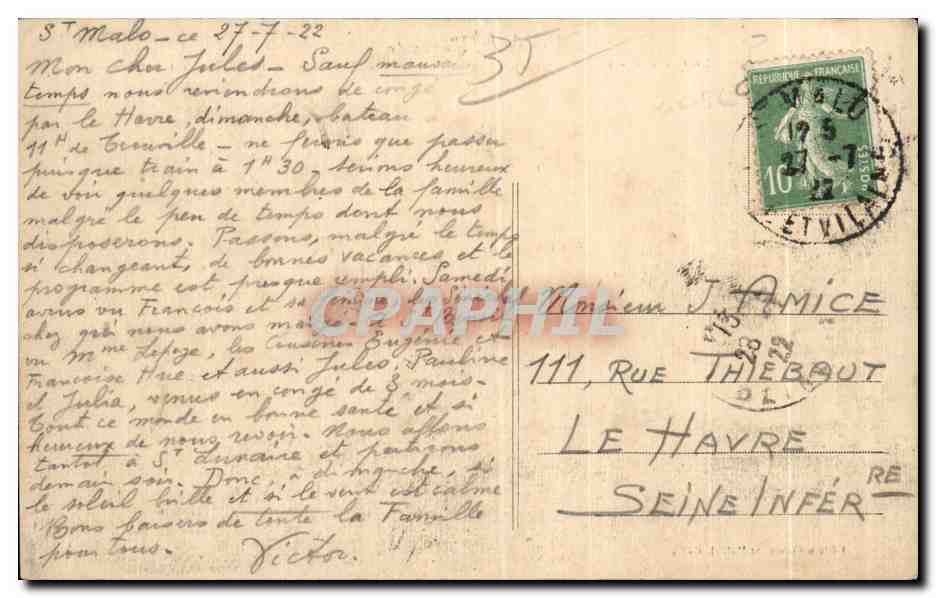 St Malo - ce 27-7-22
Mon cher Jules - Sauf mauvais
temps nous reviendrons de congé
par le Havre, dimanche, bateau
11H de Trouville - ne ferons que passer
puisque train à 1H30, serions heureux
de voir quelques membres de la famille
malgré le peu de temps dont nous
disposerons. Passons, malgré le temps
si changeant, de bonnes vacances et le
programme est presque rempli. Samedi
avons vu François et sa
chez qui nous avons
vu Mme Lepeze, les Cousines Eugénie et
Françoise Hue et aussi Jules, Pauline
et Julia, venus en congé de 3 mois.
Tout ce monde en bonne santé et si
heureux de nous revoir. Nous allons
tantôt à St Lunaire et partirons
demain soir. Donc, à dimanche, si
le soleil brille et si le vent est calme
Bons baisers de toute la Famille
pour tous.
Victor.
35
REPUBLIQUE FRANÇAISE
POSTES
10
MALO
12 5
27 -7
22
ET VILAINE
Monsieur J. AMICE
111, RUE THIEBAUT
LE HAVRE
SEINE INFÉRRE
13
28
22
CPARPHIL